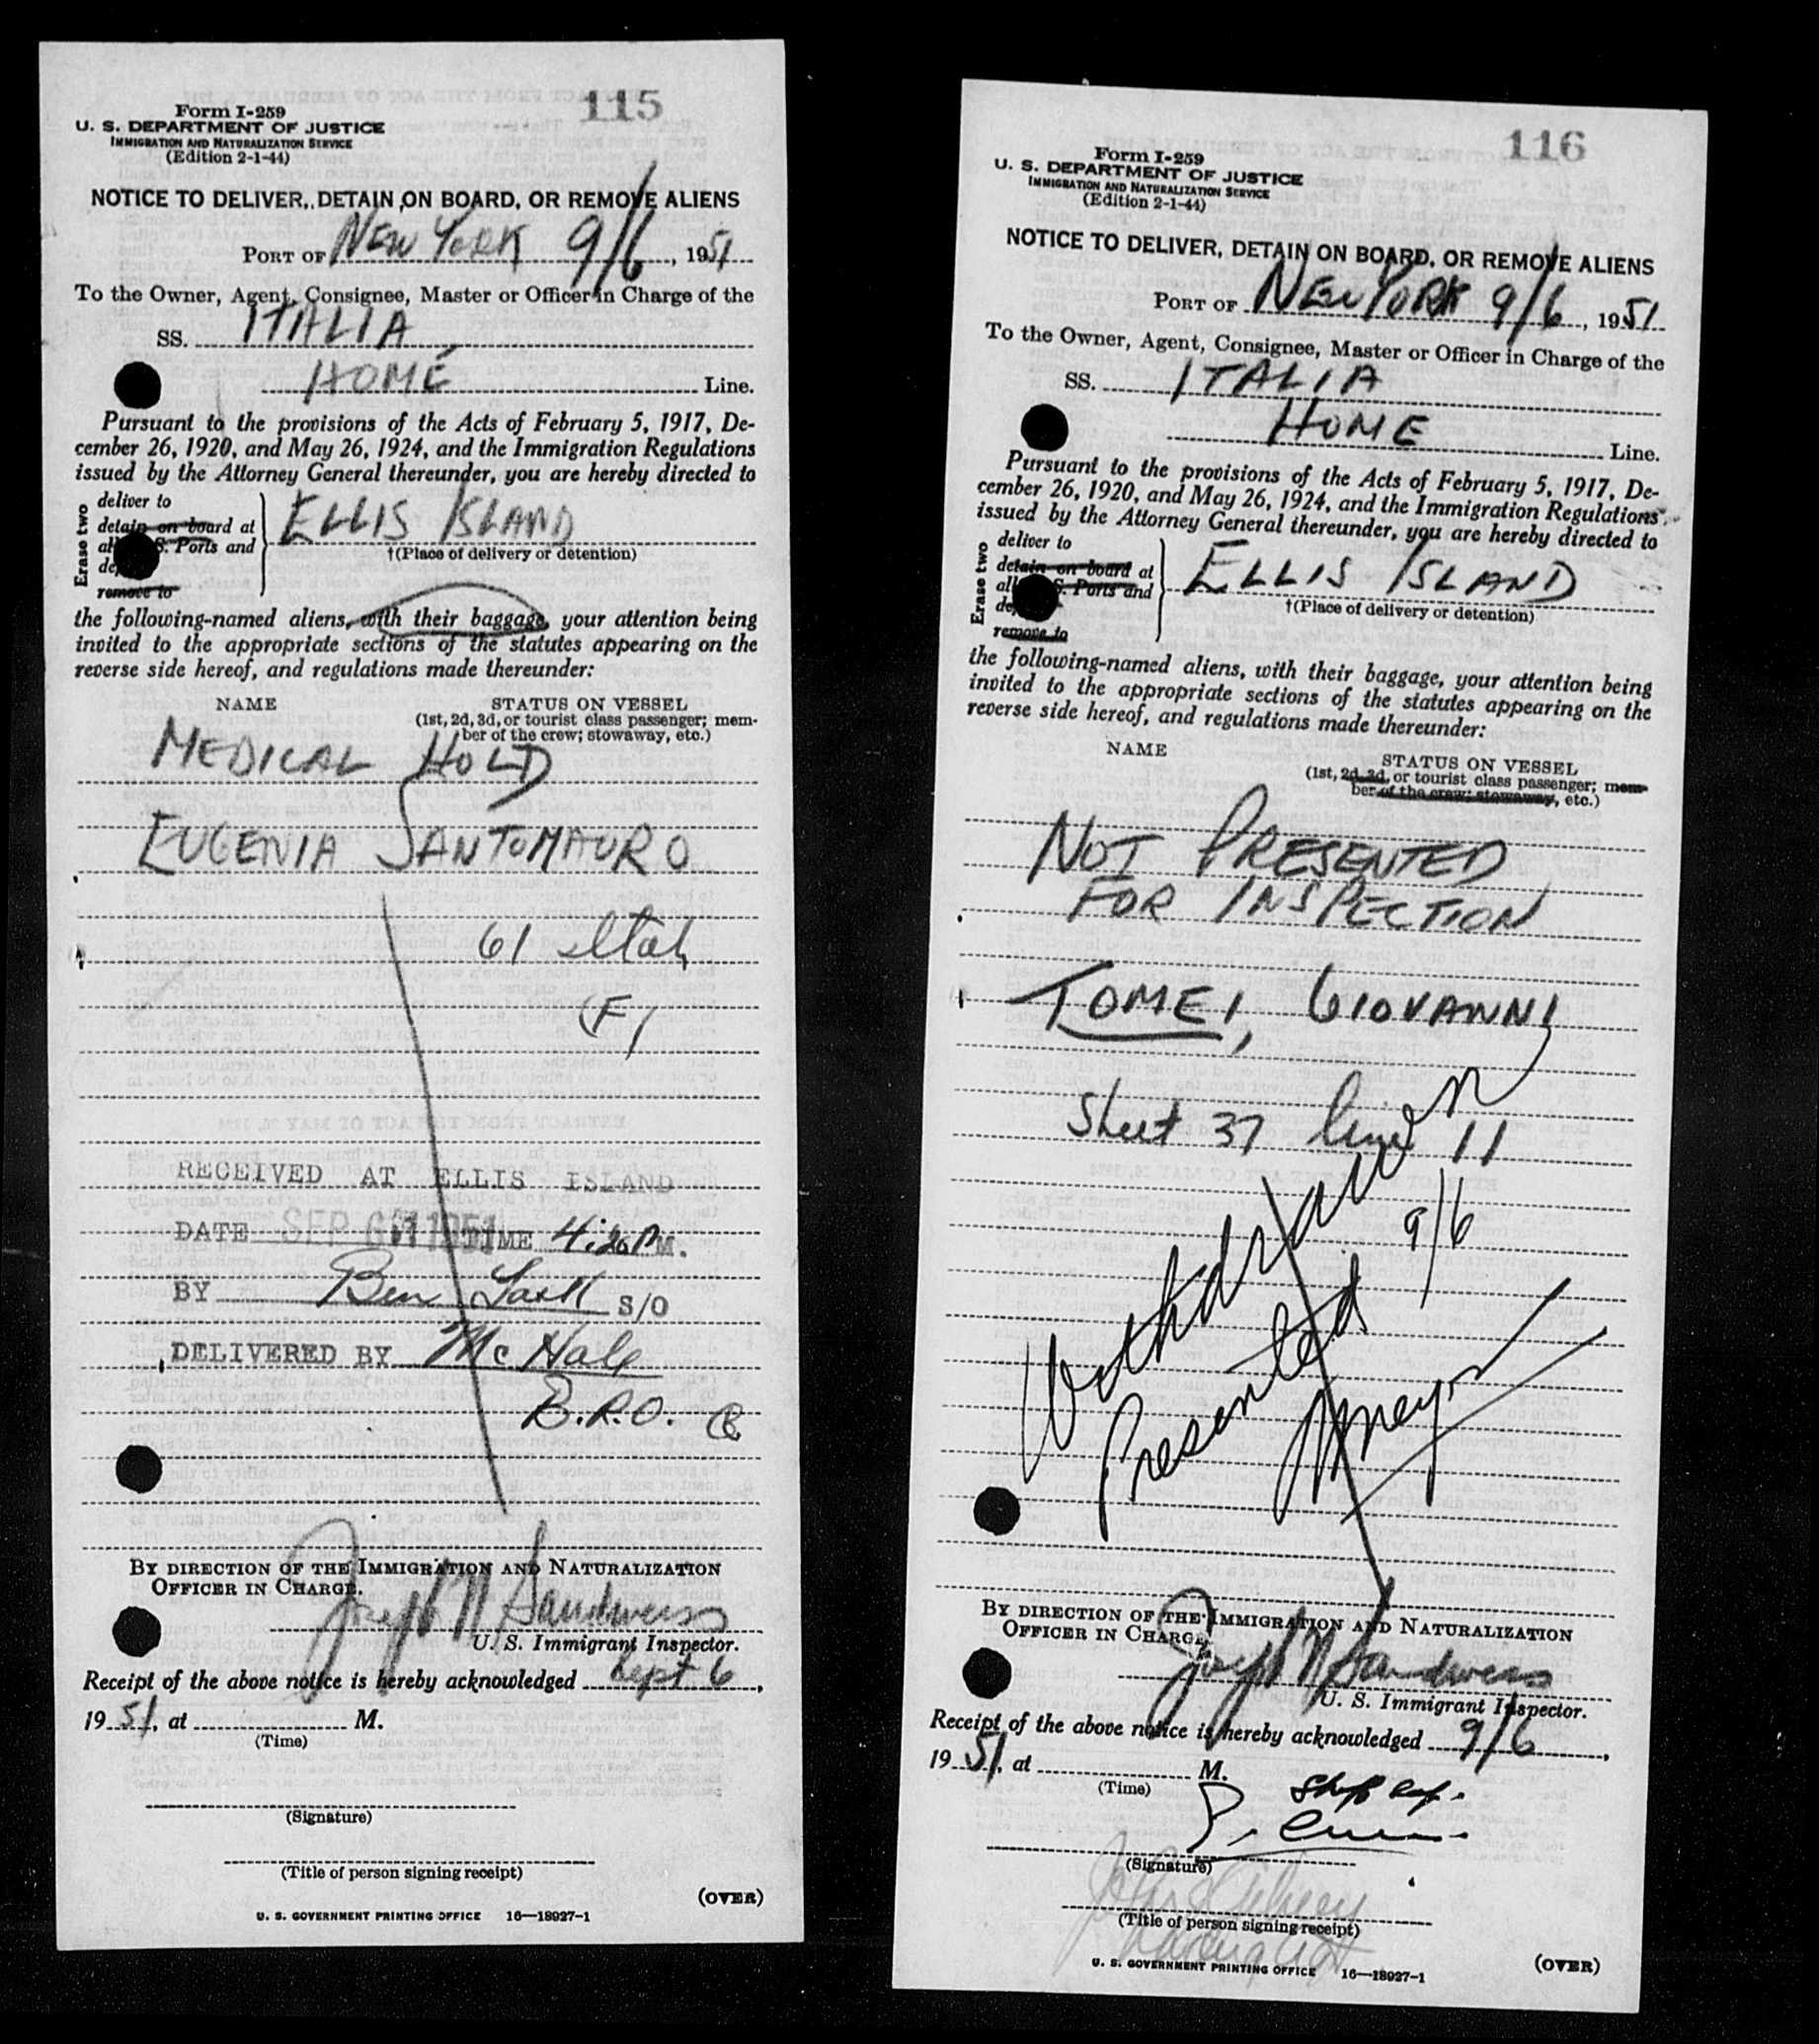 115
Form I-259
U. S. DEPARTMENT OF JUSTICE
IMMIGRATION AND NATURALIZATION SERVICE
(Edition 2-1-44)
NOTICE TO DELIVER, DETAIN ON BOARD, OR REMOVE ALIENS
PORT OF NEW YORK 9/6, 1951
To the Owner, Agent, Consignee, Master or Officer in Charge of the
SS. ITALIA
HOME Line.
Pursuant to the provisions of the Acts of February 5, 1917, De-
cember 26, 1920, and May 26, 1924, and the Immigration Regulations
issued by the Attorney General thereunder, you are hereby directed to
Erase two
deliver to
detain on board at
al S. Ports and
de
remove to
ELLIS ISLAND
†(Place of delivery or detention)
the following-named aliens, with their baggage, your attention being
invited to the appropriate sections of the statutes appearing on the
reverse side hereof, and regulations made thereunder:
NAME STATUS ON VESSEL
(1st, 2d, 3d, or tourist class passenger; mem-
ber of the crew; stowaway, etc.)
MEDICAL HOLD
EUGENIA SANTOMAURO
61 Italy
(F)
RECEIVED AT ELLIS ISLAND
DATE SEP 6 1951 TIME 4:20 P M.
BY Ben S/O
DELIVERED BY McHale
B.R.O.
BY DIRECTION OF THE IMMIGRATION AND NATURALIZATION
OFFICER IN CHARGE.
Joseph N Sandweiss
U. S. Immigrant Inspector.
Receipt of the above notice is hereby acknowledged Sept 6,
1951, at M.
(Time)
(Signature)
(Title of person signing receipt)
(OVER)
U. S. GOVERNMENT PRINTING OFFICE 16—18927-1
116
Form I-259
U. S. DEPARTMENT OF JUSTICE
IMMIGRATION AND NATURALIZATION SERVICE
(Edition 2-1-44)
NOTICE TO DELIVER, DETAIN ON BOARD, OR REMOVE ALIENS
PORT OF NEW YORK 9/6, 1951
To the Owner, Agent, Consignee, Master or Officer in Charge of the
SS. ITALIA
HOME Line.
Pursuant to the provisions of the Acts of February 5, 1917, De-
cember 26, 1920, and May 26, 1924, and the Immigration Regulations
issued by the Attorney General thereunder, you are hereby directed to
Erase two
deliver to
detain on board at
all S. Ports and
de
remove to
ELLIS ISLAND
†(Place of delivery or detention)
the following-named aliens, with their baggage, your attention being
invited to the appropriate sections of the statutes appearing on the
reverse side hereof, and regulations made thereunder:
NAME STATUS ON VESSEL
(1st, 2d, 3d, or tourist class passenger; mem-
ber of the crew; stowaway, etc.)
NOT PRESENTED
FOR INSPECTION
TOMEI, GIOVANNI
Sheet 37 line 11
Withdrawn
Presented 9/6
BY DIRECTION OF THE IMMIGRATION AND NATURALIZATION
OFFICER IN CHARGE.
Joseph N Sandweiss
U. S. Immigrant Inspector.
Receipt of the above notice is hereby acknowledged 9/6,
1951, at M.
(Time)
(Signature)
(Title of person signing receipt)
(OVER)
U. S. GOVERNMENT PRINTING OFFICE 16—18927-1